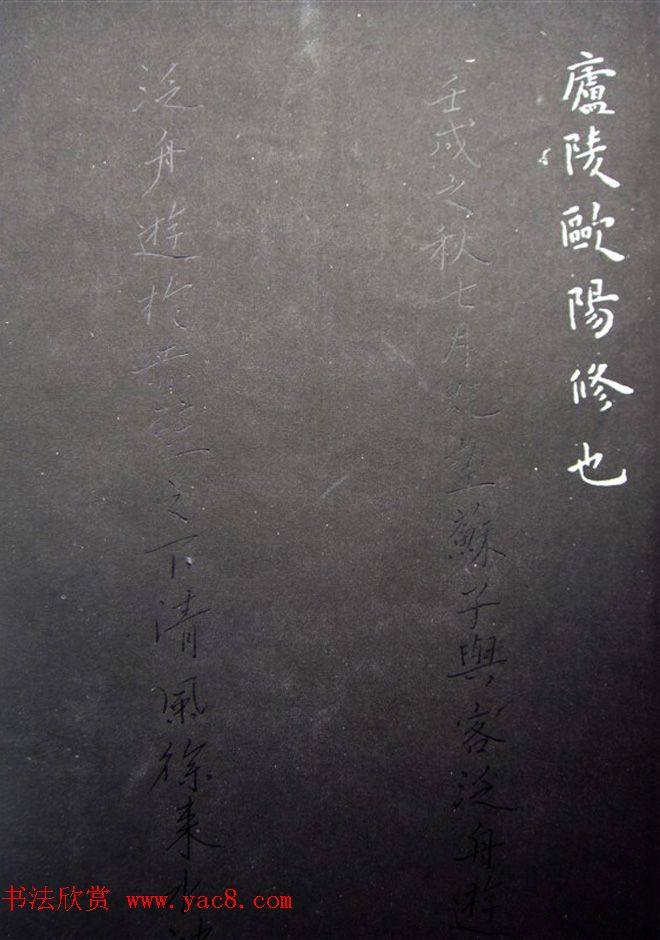 廬陵歐陽修也
壬戌之秋七月既望蘇子與客泛舟遊
泛舟遊於赤壁之下清風徐來水波
书法欣赏 www.yac8.com